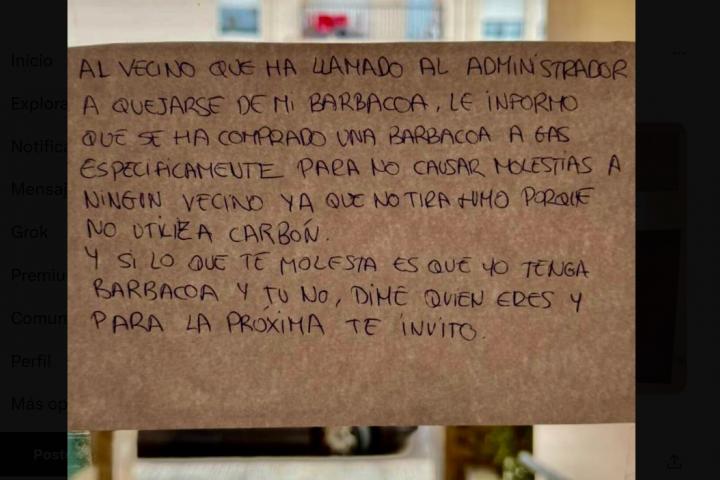 Inicio
Explora
Notific
Mensaj
Grok
Premiu
Comun
Perfil
Más op
Post
AL VECINO QUE HA LLAMADO AL ADMINISTRADOR
A QUEJARSE DE MI BARBACOA, LE INFORMO
QUE SE HA COMPRADO UNA BARBACOA A GAS
ESPECIFICAMENTE PARA NO CAUSAR MOLESTIAS A
NINGUN VECINO YA QUE NO TIRA HUMO PORQUE
NO UTILIZA CARBÓN.
Y SI LO QUE TE MOLESTA ES QUE YO TENGA
BARBACOA Y TU NO, DIME QUIEN ERES Y
PARA LA PRÓXIMA TE INVITO.